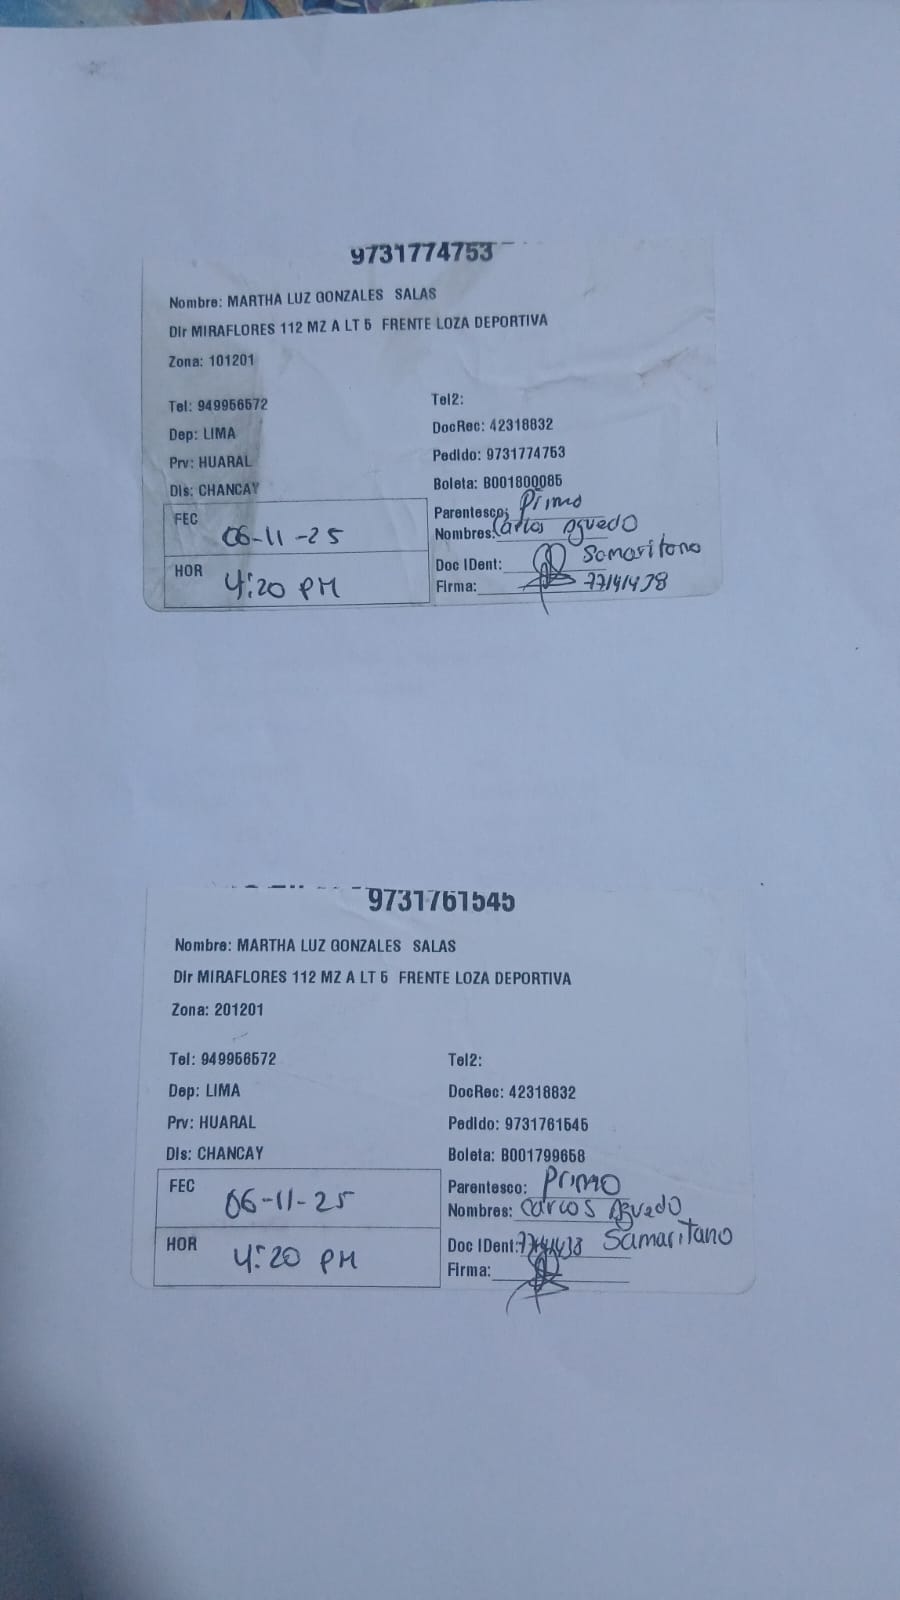 9731774753
Nombre: MARTHA LUZ GONZALES SALAS
Dir MIRAFLORES 112 MZ A LT 5 FRENTE LOZA DEPORTIVA
Zona: 101201
Tel: 949956572 Tel2:
Dep: LIMA DocRec: 42318832
Prv: HUARAL Pedido: 9731774753
Dis: CHANCAY Boleta: B001800085
FEC 06-11-25 Parentesco: Primo
Nombres: Carlos Aguedo
Samaritano
HOR 4:20 PM Doc IDent:
Firma: 77141438
9731761545
Nombre: MARTHA LUZ GONZALES SALAS
Dir MIRAFLORES 112 MZ A LT 5 FRENTE LOZA DEPORTIVA
Zona: 201201
Tel: 949956572 Tel2:
Dep: LIMA DocRec: 42318832
Prv: HUARAL Pedido: 9731761545
Dis: CHANCAY Boleta: B001799658
FEC 06-11-25 Parentesco: Primo
Nombres: Carlos Aguedo
Samaritano
HOR 4:20 PM Doc IDent:
Firma: